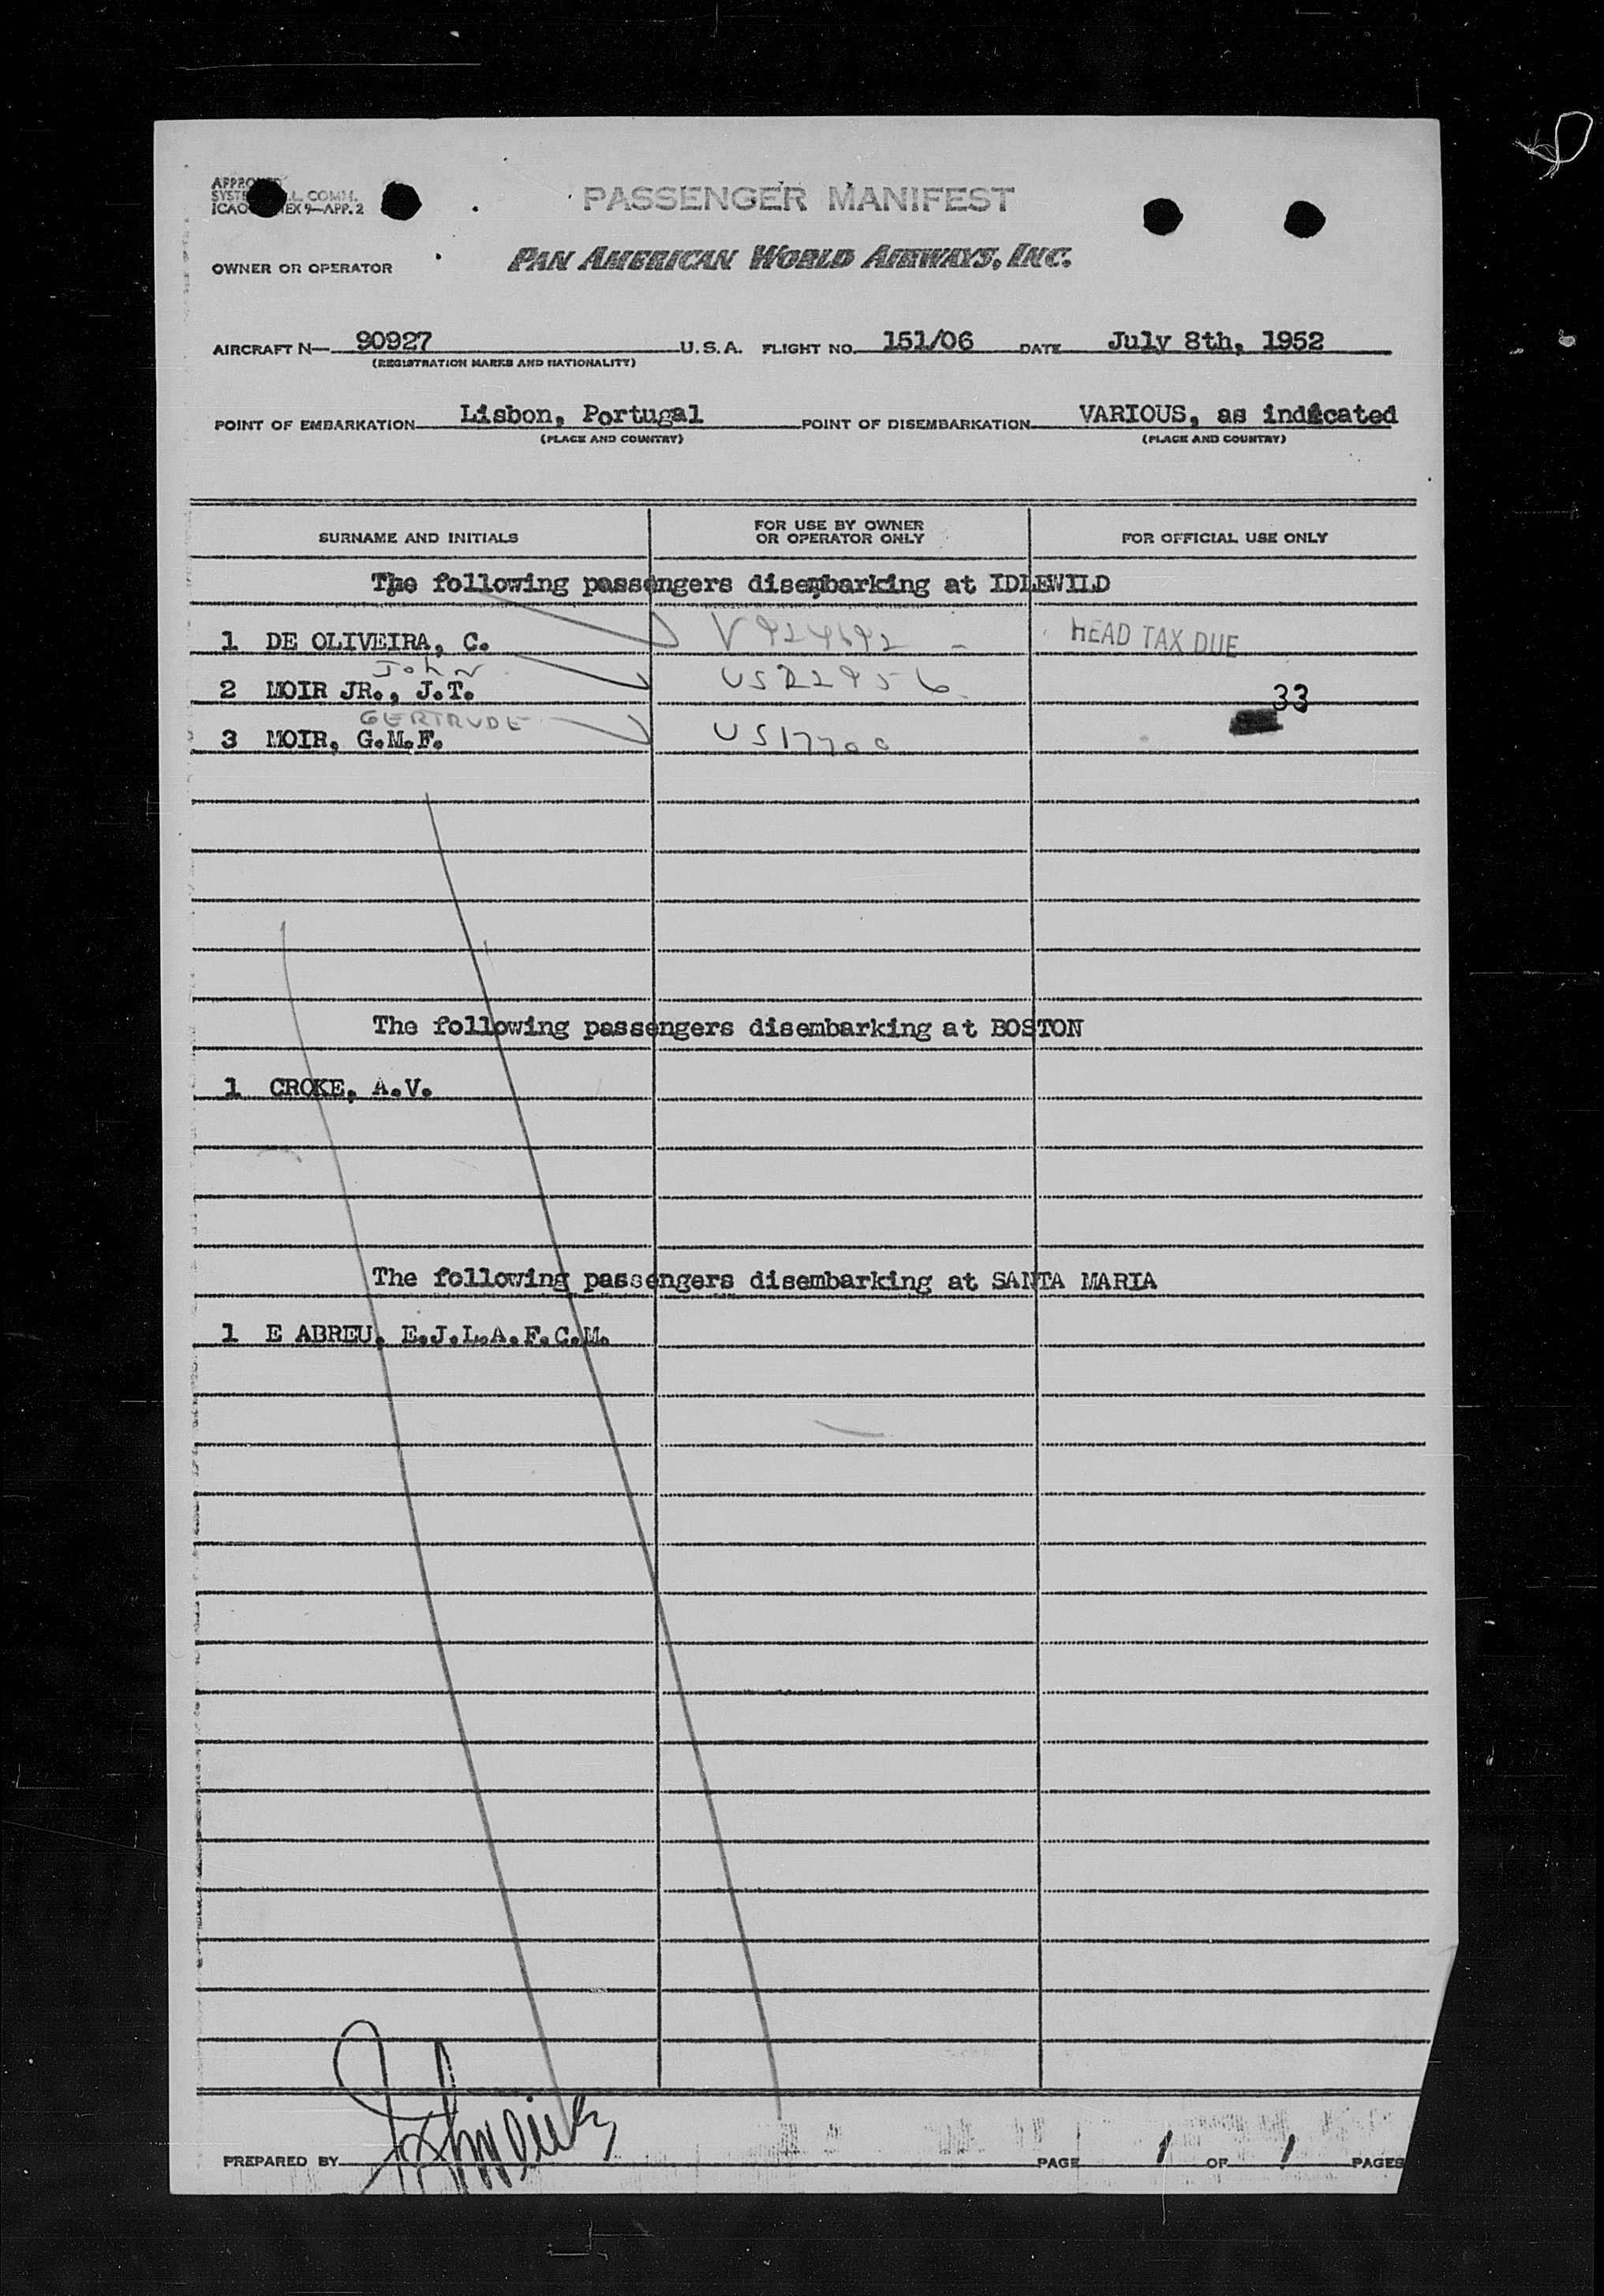 PASSENGER MANIFEST
ICAO
EX 9—APP. 2
L COMM.
OWNER OR OPERATOR
PAN AMERICAN WORLD AIRWAYS, INC.
AIRCRAFT N— 90927 U.S.A. FLIGHT NO. 151/06 DATE July 8th, 1952
(REGISTRATION MARKS AND NATIONALITY)
POINT OF EMBARKATION Lisbon, Portugal POINT OF DISEMBARKATION VARIOUS, as indicated
(PLACE AND COUNTRY) (PLACE AND COUNTRY)
SURNAME AND INITIALS FOR USE BY OWNER OR OPERATOR ONLY FOR OFFICIAL USE ONLY
The following passengers disembarking at IDLEWILD
1 DE OLIVEIRA, C. V 924692 HEAD TAX DUE
John
2 MOIR JR., J.T. 33
GERTRUDE
3 MOIR, G.M.F. US17700
The following passengers disembarking at BOSTON
1 CROKE, A.V.
The following passengers disembarking at SANTA MARIA
1 E ABREU, E.J.L.A.F.C.M.
PREPARED BY PAGE 1 OF 1 PAGES